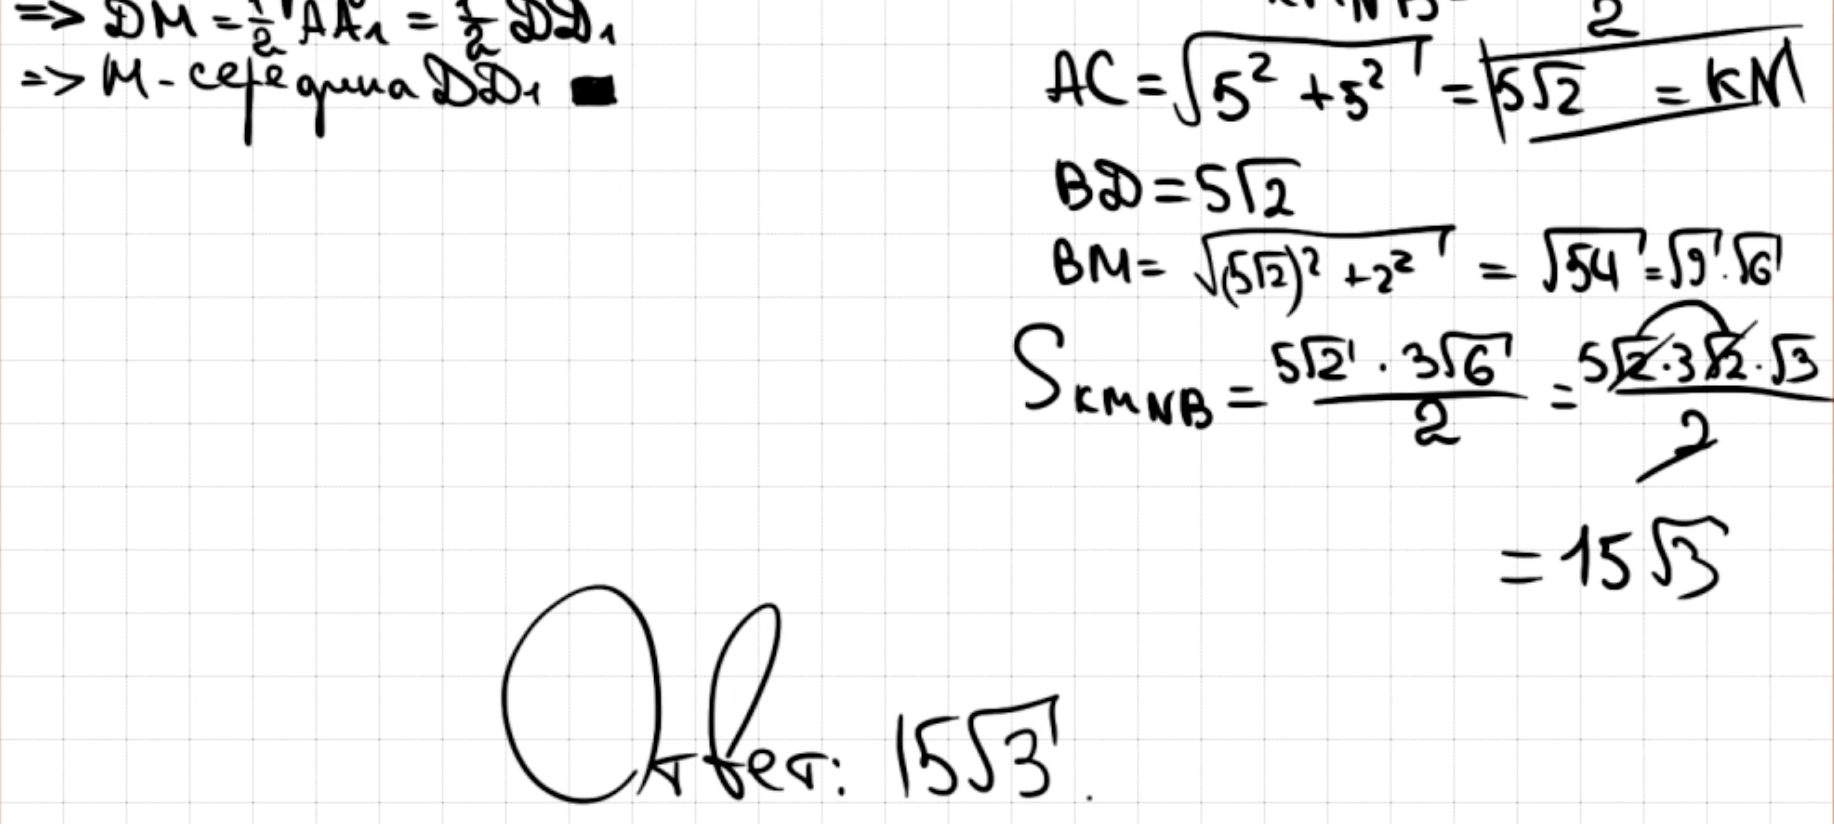 => DM = 1/2 AA₁ = 1/2 DD₁
=> M - середина DD₁ ■
2
AC = √(5² + 5²) = 5√2 = KM
BD = 5√2
BM = √((5√2)² + 2²) = √54 = √9 · √6
S KMNB = (5√2 · 3√6)/2 = (5√2 · 3√2 · √3)/2
= 15√3
Ответ: 15√3.